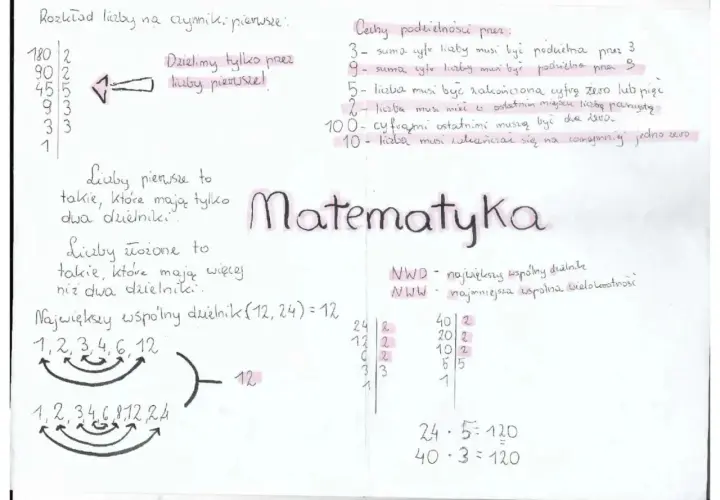 Rozkład liczby na czynniki pierwsze:
180 | 2
90 | 2
45 | 5
9 | 3
3 | 3
1
Dzielimy tylko przez
liczby pierwsze!
Liczby pierwsze to
takie, które mają tylko
dwa dzielniki.
Liczby złożone to
takie, które mają więcej
niż dwa dzielniki.
Największy wspólny dzielnik (12, 24) = 12
1, 2, 3, 4, 6, 12
12
1, 2, 3, 4, 6, 8, 12, 24
Matematyka
Cechy podzielności przez:
3 - suma cyfr liczby musi być podzielna przez 3
9 - suma cyfr liczby musi być podzielna przez 9
5 - liczba musi być zakończona cyfrą zero lub pięć
2 - liczba musi mieć w ostatnim miejscu liczbę parzystą
100 - cyframi ostatnimi muszą być dwa zera.
10 - liczba musi zakańczać się na conajmniej jedno zero
NWD - największy wspólny dzielnik
NWW - najmniejsza wspólna wielokrotność
24 | 2
12 | 2
6 | 2
3 | 3
1
40 | 2
20 | 2
10 | 2
5 | 5
1
24 · 5 = 120
40 · 3 = 120